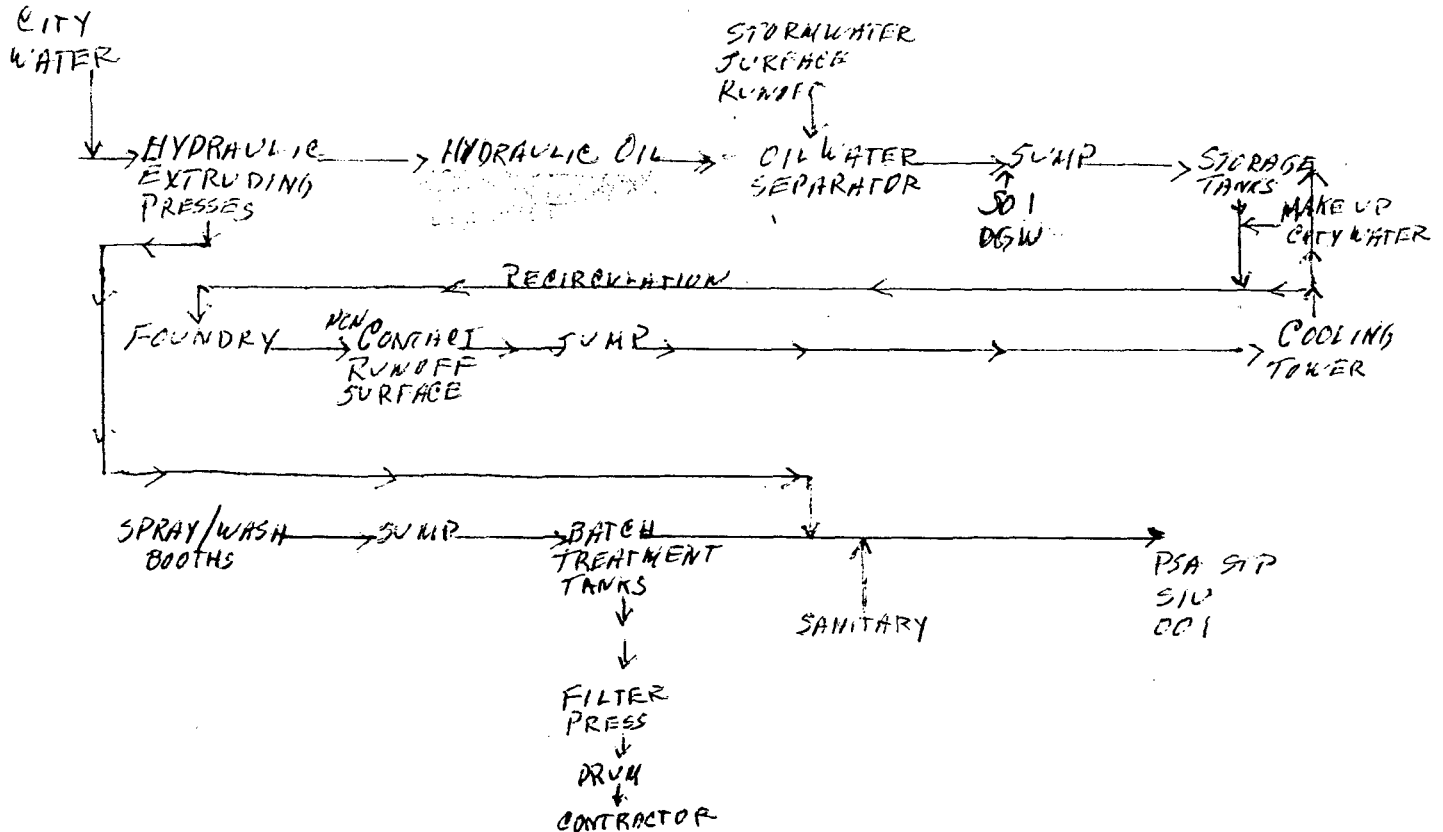 CITY
WATER
STORMWATER
SURFACE
RUNOFF
HYDRAULIC
EXTRUDING
PRESSES
HYDRAULIC OIL
OIL WATER
SEPARATOR
SUMP
STORAGE
TANKS
MAKE UP
CITY WATER
RECIRCULATION
FOUNDRY
NON CONTACT
RUNOFF
SURFACE
SUMP
COOLING
TOWER
SPRAY/WASH
BOOTHS
SUMP
BATCH
TREATMENT
TANKS
SANITARY
PSA STP
SIU
001
FILTER
PRESS
DRUM
CONTRACTOR